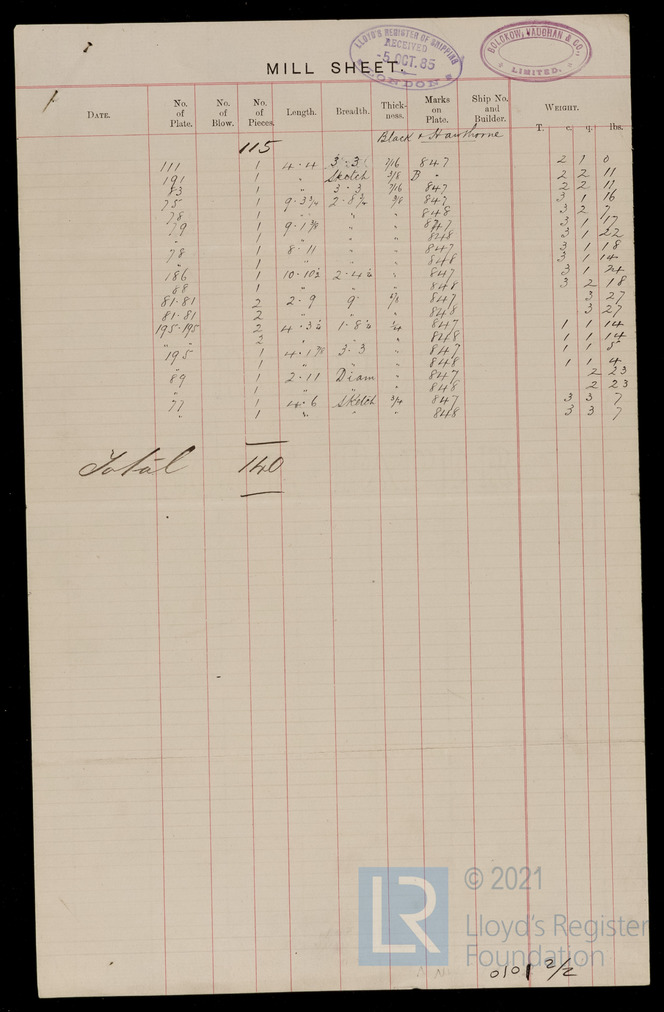 LLOYD'S REGISTER OF SHIPPING
RECEIVED
-5 OCT. 85
LONDON
BOLCKOW, VAUGHAN & CO.,
LIMITED.
MILL SHEET.
DATE. No. of Plate. No. of Blow. No. of Pieces. Length. Breadth. Thick-ness. Marks on Plate. Ship No. and Builder. WEIGHT.
T. c. q. lbs.
Black & Hawthorne
115
111 1 4·4 3·3 7/16 847 2 1 0
191 1 " Sketch 3/8 B " 2 2 11
83 1 " 3·3 7/16 847 2 2 11
75 1 9·3¾ 2·8¾ 3/8 847 3 1 16
78 1 " " " 848 3 2 7
79 1 9·1⅜ " " 847 3 1 17
" 1 " " " 848 3 1 22
78 1 8·11 " " 847 3 1 18
" 1 " " " 848 3 1 14
186 1 10·10½ 2·4¼ " 847 3 1 24
88 1 " " " 848 3 2 18
81·81 2 2·9 9 847 3 27
81·81 2 " " " 848 3 27
195·195 2 4·3¼ 1·8¼ ¼ 847 1 1 14
" " 2 " " " 848 1 1 14
195 1 4·1⅞ 3·3 " 847 1 1 5
" 1 " " " 848 1 1 4
89 1 2·11 Diam " 847 2 23
" 1 " " " 848 2 23
77 1 4·6 Sketch ¾ 847 3 3 7
" 1 " " " 848 3 3 7
Total 140
LR
© 2021
Lloyd's Register
Foundation
0101 2/2